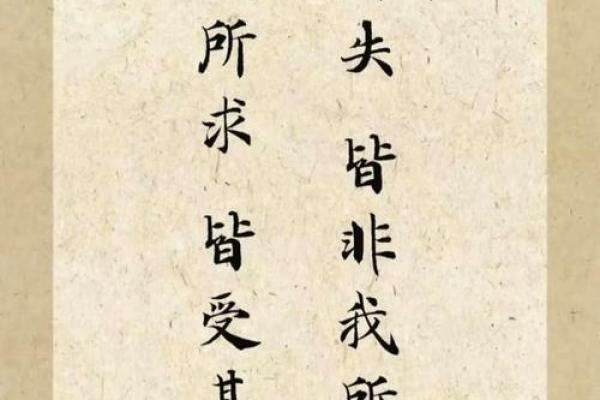 失 皆非我所
所求 皆受其